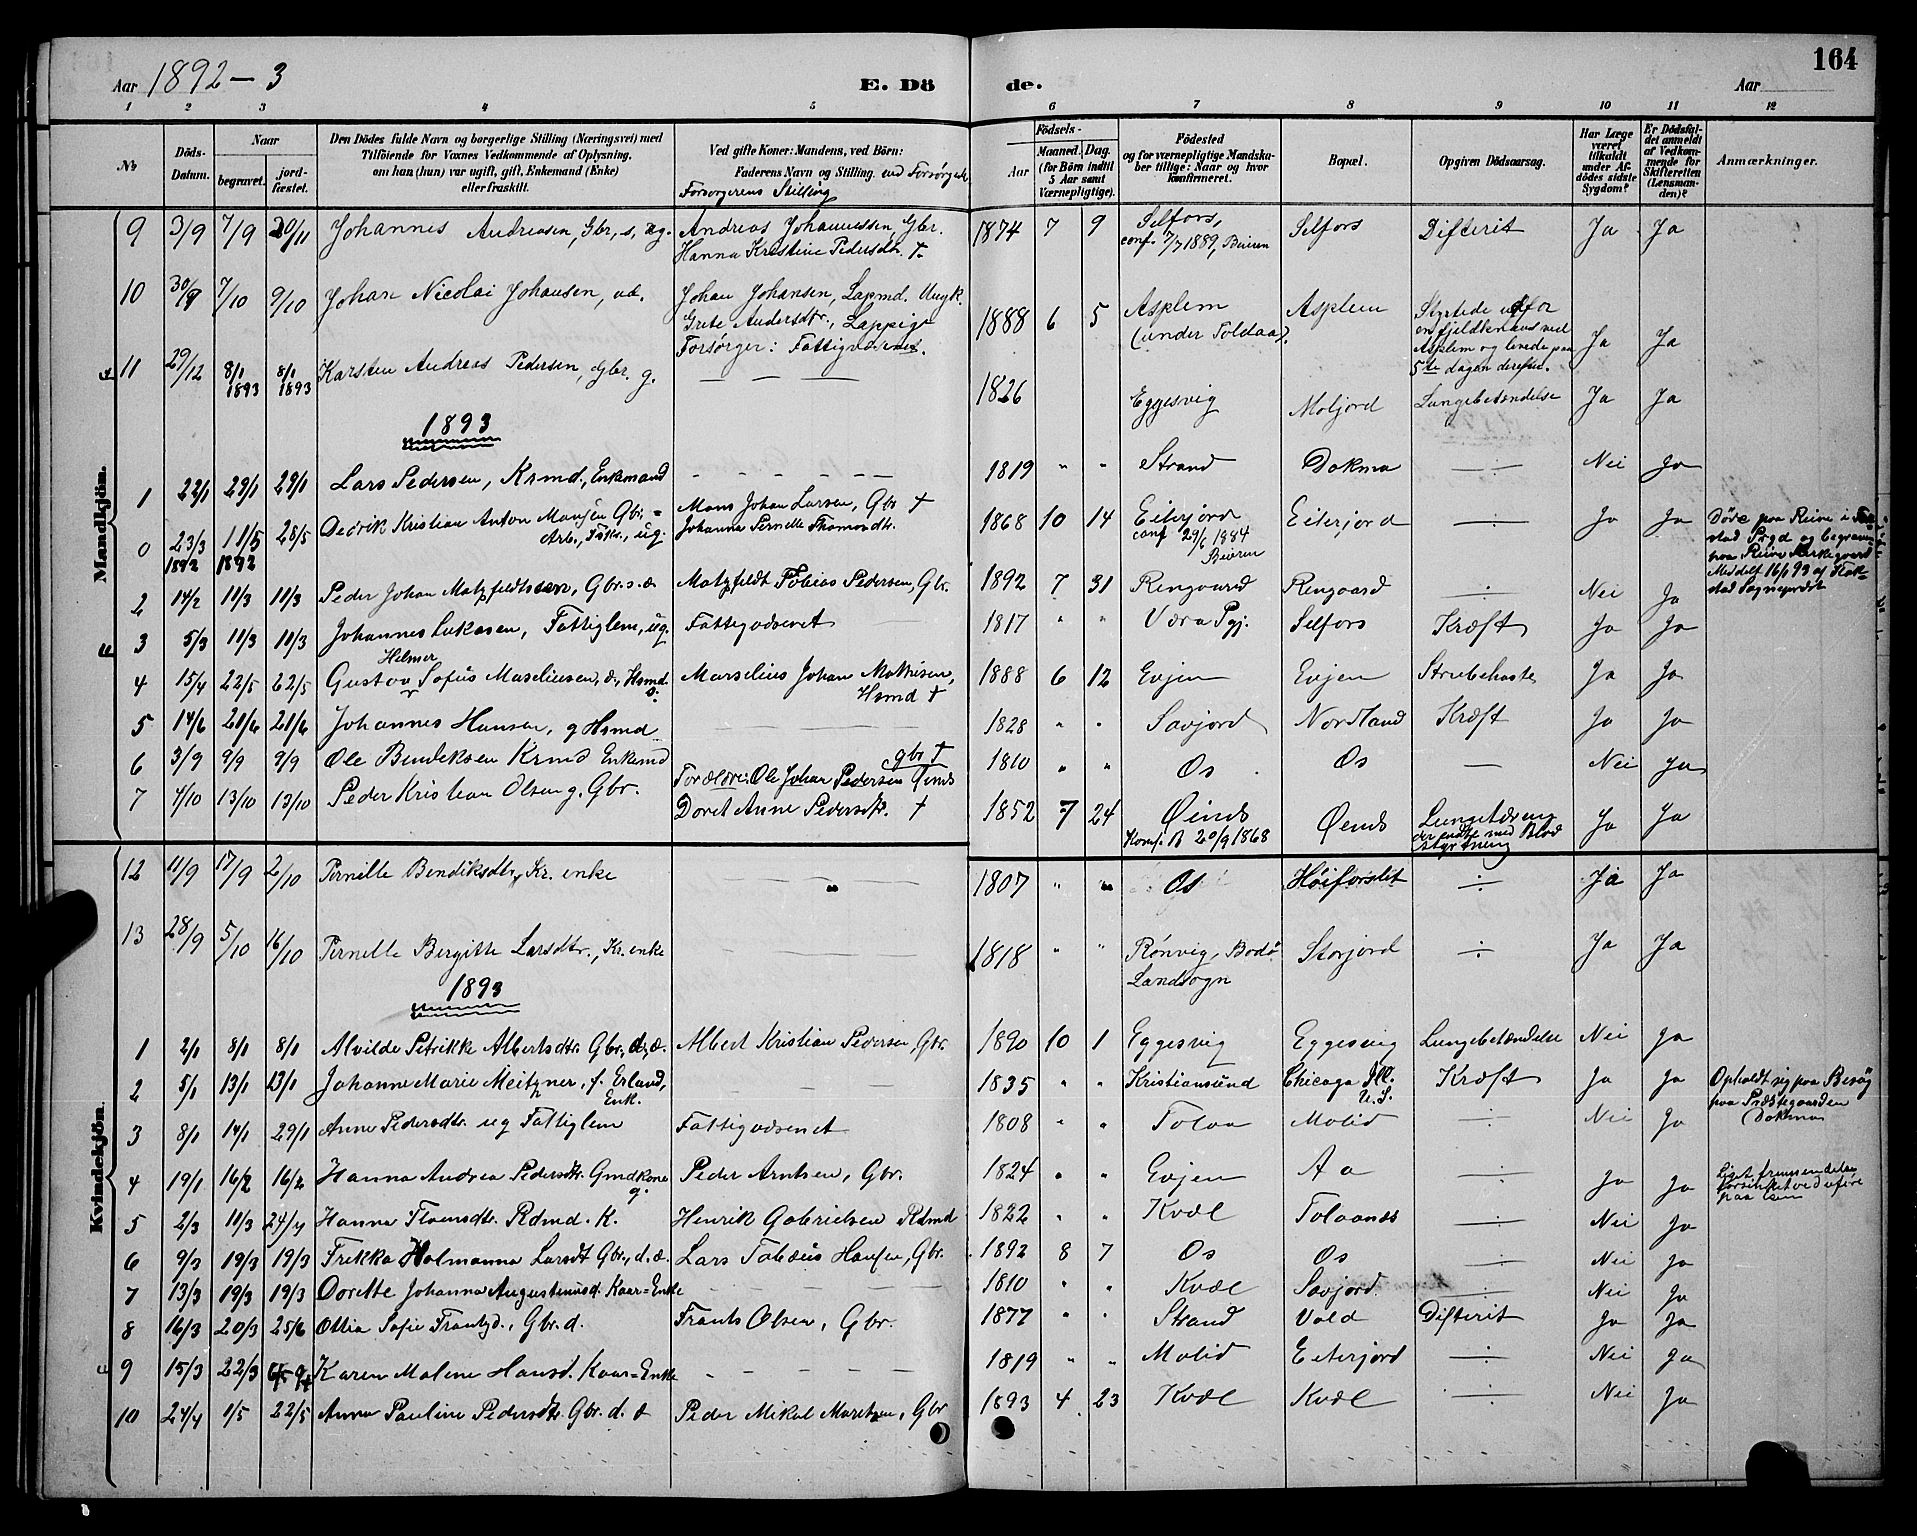 Aar 1892-3 E. Dö
de. Aar 164
1 2 3 4 5 6 7 8 9 10 11 12
No
Döds-Datum.
Naar
begravet. jordfæstet.
Den Dödes fulde Navn og borgerlige Stilling (Næringsvei) med
Tilföiende for Voxnes Vedkommende af Oplysning,
om han (hun) var ugift, gift, Enkemand (Enke)
eller fraskilt.
Ved gifte Koner: Mandens, ved Börn:
Faderens Navn og Stilling. ved Forsørgede
Forsorgerens Stilling
Födsels-
Aar Maaned. Dag.
(for Börn indtil
5 Aar samt
Værnepligtige).
Födested
og for værnepligtige Mandska-
ber tillige: Naar og hvor
konfirmeret.
Bopæl.
Opgiven Dödsaarsag.
Har Læge
været
tilkaldt
under Af-
dödes sidste
Sygdom?
Er Dödsfal-
det anmeldt
af Vedkom-
mende for
Skifteretten
(Lensman-
den)?
Anmærkninger.
Mandkjön.
9 3/9 7/9 20/11 Johannes Andreasen, Gbr, s, ug. Andreas Johannessen, Gbr. 1874 7 9 Selfors, Selfors Difterit Ja Ja
Hanna Kristine Pedersdtr. † conf. 7/7 1889, Beieren
10 30/9 7/10 9/10 Johan Nicolai Johansen, uæ. Johan Johansen, Lapmd. Ungk. 1888 6 5 Asplem Asplem Styrtede udfor Ja Ja
Grete Andersdtr., Lappige (under Toldaa). en fjeldknaus ved
Forsörger: Fattigvæsenet. Asplem og levede paa
5te dagen derefter.
11 29/12 8/1 1893 8/1 1893 Karsten Andreas Pedersen, Gbr. g. — — — 1826 Eggesvig Moljord Lungebetændelse Ja Ja
1893
1 22/1 29/1 29/1 Lars Pedersen, Krmd., Enkemand - - - - - - 1819 " " Strand Dokmo ÷ Nei Ja
0 23/3 1892 11/5 1892 28/5 Dedrik Kristian Anton Monsen Gbr= Mons Johan Larsen, Gbr † 1868 10 14 Eiterjord Eiterjord ÷ Ja Ja
Arb., Fskr., ug. Johanna Pernelle Thomasdtr. conf 29/6 1884
Beieren
Døde paa Reine i
stad Prgd og begraven
paa Reine Kirkegaard
Meddelt 16/1 93 af
stad Sognepræst
2 14/2 11/3 11/3 Peder Johan Matzfeldtsøn, Gbr. s. æ Matzfeldt Tobias Pedersen, Gbr. 1892 7 31 Ringaard Ringaard ÷ Nei Ja
3 5/3 11/3 11/3 Johannes Lukasen, Fattiglem, ug. Fattigvæsenet 1817 " " Værø Pgj. Selfors Kræft Ja Ja
4 15/4 22/5 22/5 Gustav Helmer Sofus Maseliusen, æ, Hsmd s. Marselius Johan Mathisen, Hsmd † 1888 6 12 Evjen Evjen Strubehoste Ja Ja
5 14/6 21/6 21/6 Johannes Hansen, g Hsmd — — — 1828 " " Savjord Nordland Kræft Ja Ja
6 3/9 9/9 9/9 Ole Bendiksen Krmd Enkemd 1810 " " Os Os — Nei Ja
7 4/10 13/10 13/10 Peder Kristian Olsen g. Gbr. Forældre: Ole Johan Pedersen Øines gbr † 1852 7 24 Øines Øines Lungetæring Ja Ja
Doret Anne Pedersdtr. † Konf. B 20/9 1868 der endte med Blod
styrtning
Kvindekjön.
12 11/9 17/9 2/10 Pernille Bendiksdtr, Kr. enke — " — 1807 " " Os Höiforslit ÷ Ja Ja
13 28/9 5/10 16/10 Pernille Bergitte Larsdtr., Kr. enke — — — 1818 " " Rönvig, Bodö Storjord ÷ Ja Ja
Landsogn
1893
1 2/1 8/1 8/1 Alvilde Petrikke Albertsdtr. Gbr, d, æ. Albert Kristian Pedersen, Gbr. 1890 10 1 Eggesvig Eggesvig Lungebetændelse Nei Ja
2 5/1 13/1 13/1 Johanne Marie Meitzner, f. Erland, Enk. — — 1835 " " Kristiansund Chicago Ill. U. S. Kræft Ja Ja Opholdt sig paa Besög
paa Præstegaarden
Dokmo
3 8/1 14/1 29/1 Anne Pedersdtr. ug Fattiglem Fattigvæsenet 1808 " " Tolaa Molid ÷ Nei Ja
4 19/1 16/2 16/2 Hanna Andrea Pedersdtr. Gmdkone g. Peder Arntsen, Gbr. 1824 " " Evjen Aa ÷ Ja Ja Liget fremsendelse
forsinket ved uføre
paa isen
5 2/3 11/3 24/4 Hanna Floensdtr. Rdmd. K. Henrik Gabrielsen Rdmd 1822 " " Kvæl Tolaanæs ÷ Nei Ja
6 9/3 19/3 19/3 Frikka Holmanna Larsdt Gbr., d. æ. Lars Tobæus Hansen, Gbr. 1892 8 7 Os Os ÷ Nei Ja
7 13/3 19/3 19/3 Dorette Johanna Augustinusd. Kaar=Enke — — — 1810 " " Kvæl Savjord ÷ Nei Ja
8 16/3 20/3 25/6 Ottia Sofie Frantzd., Gbr. d. Frants Olsen, Gbr. 1877 " " Strand Vold Difterit Ja Ja
9 15/3 22/3 Karen Malene Hansd. Kaar=Enke - - - - 1819 " " Molid Eiterjord ÷ Nei Ja
10 24/4 1/5 22/5 Anna Pauline Pedersdtr. Gbr. d. æ Peder Mikal Moritzen, Gbr 1893 4 23 Kvæl Kvæl ÷ Nei Ja